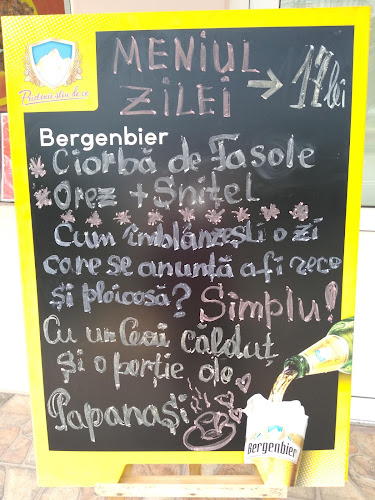 MENIUL
ZILEI → 17 lei
Bergenbier
* Ciorbă de Fasole
* Orez + Snițel
Cum îmblânzești o zi
care se anunță a fi rece
și ploioasă? Simplu!
Cu un Ceai călduț
și o porție de
Papanași
Bergenbier